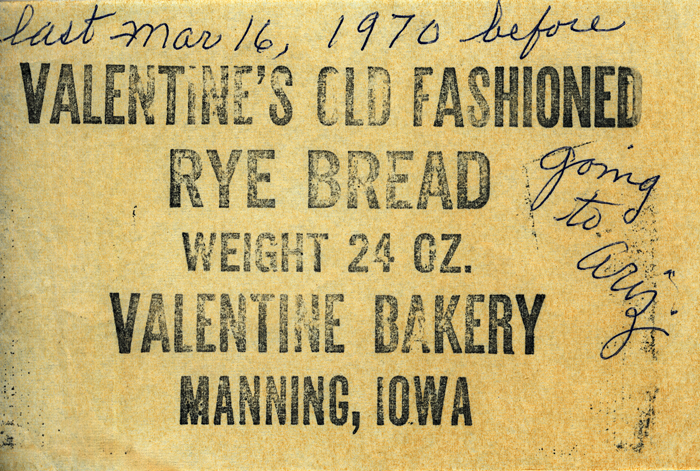 last Mar 16, 1970 before
VALENTINE'S OLD FASHIONED
going
to
Ariz.
RYE BREAD
WEIGHT 24 OZ.
VALENTINE BAKERY
MANNING, IOWA